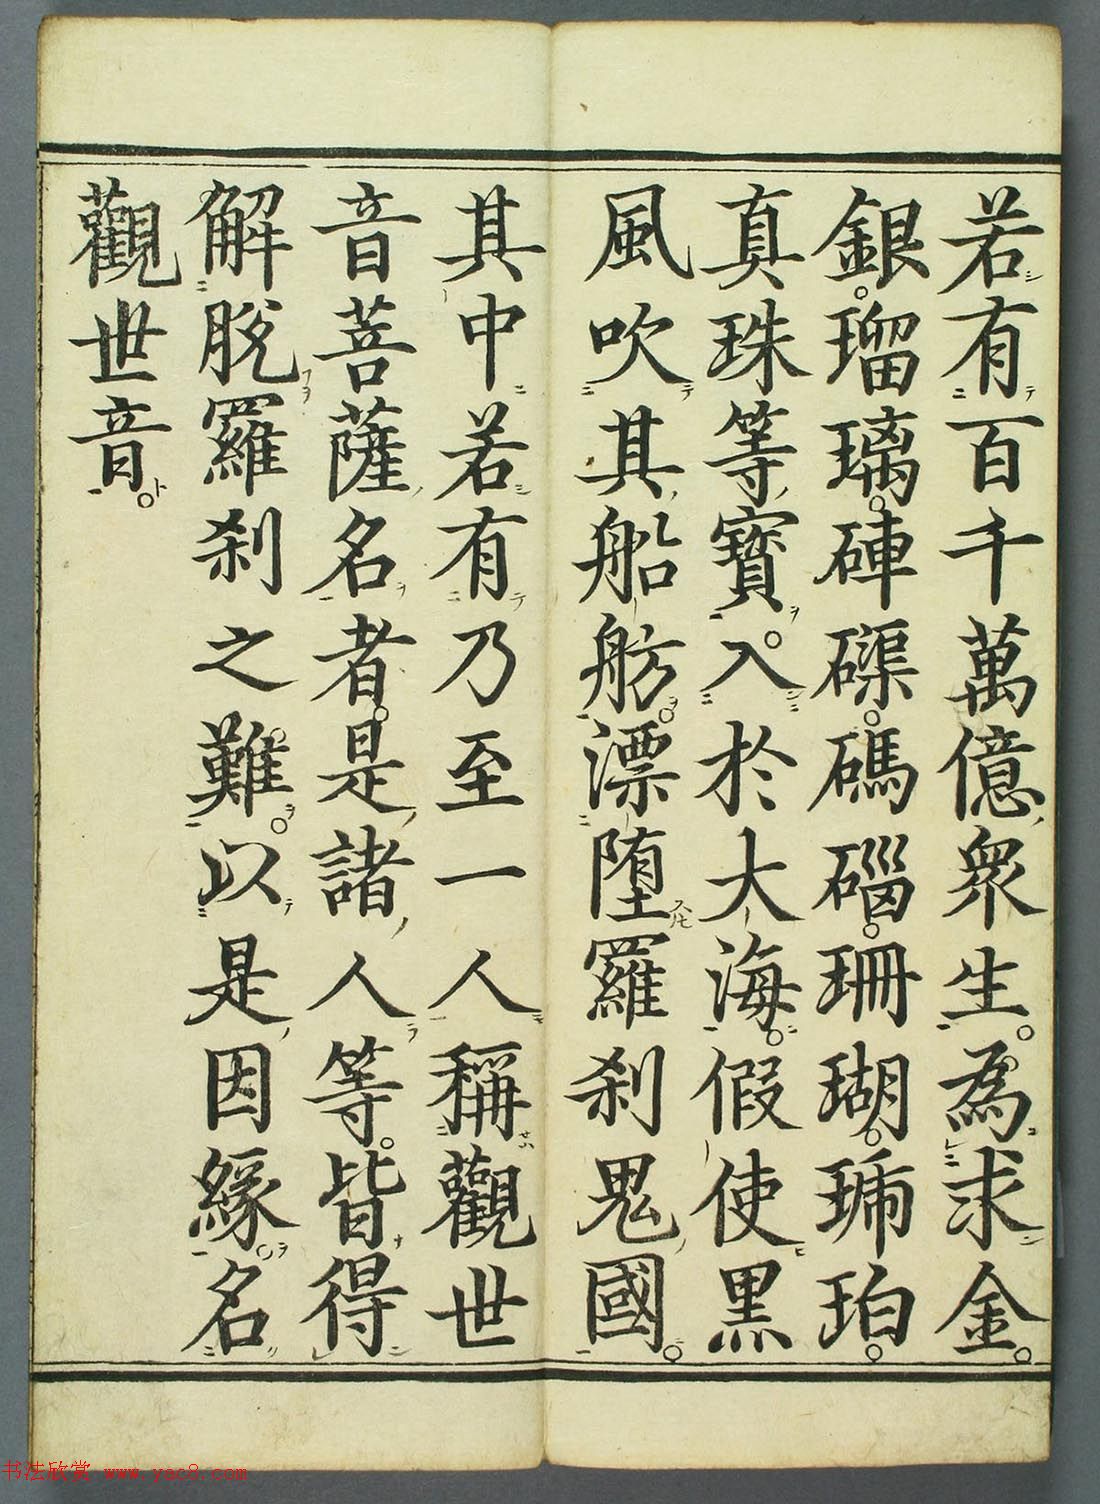 若有百千萬億衆生為求金
銀瑠璃硨磲碼碯珊瑚琥珀
真珠等寶入於大海假使黑
風吹其船舫漂堕羅刹鬼國
其中若有乃至一人稱觀世
音菩薩名者是諸人等皆得
解脱羅刹之難以是因緣名
觀世音
书法欣赏 www.yac8.com